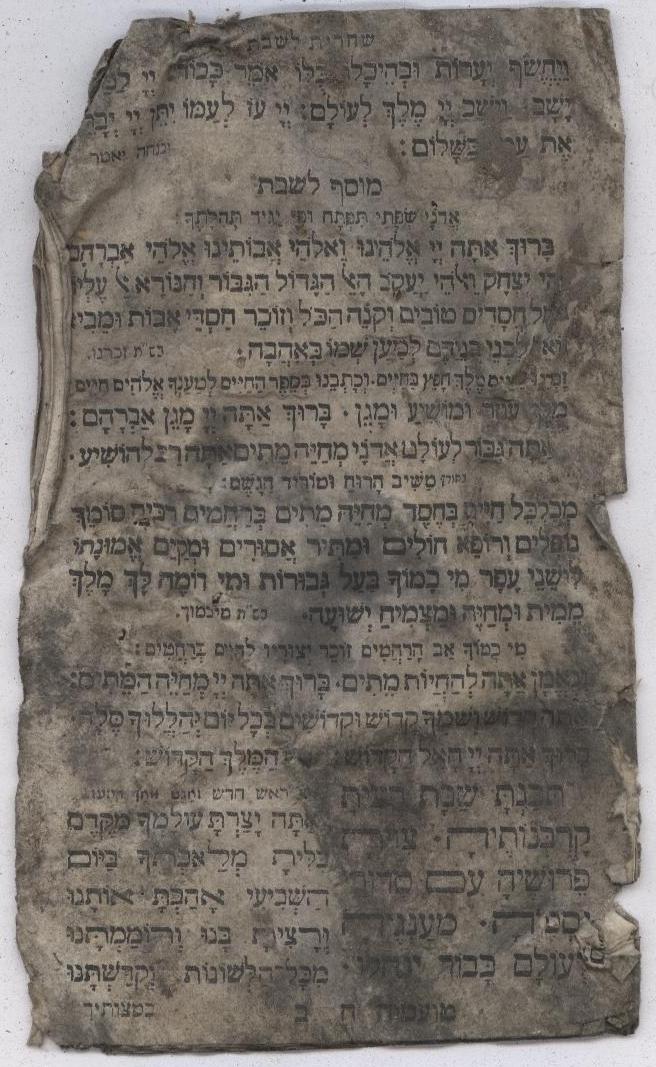 שחרית לשבת
וַיֶּחֱשׂף יְעָרוֹת וּבְהֵיכָלוֹ כֻּלּוֹ אֹמֵר כָּבוֹד יְיָ
יָשָׁב וַיֵּשֶׁב יְיָ מֶלֶךְ לְעוֹלָם: יְיָ עוֹ לְעַמּוֹ יִתֵּן יְיָ יְבָרֵךְ
אֶת בַּשָּׁלוֹם: ובמנחה יאמר
מוסף לשבת
אֲדֹנָי שְׂפָתַי תִּפְתָּח וּפִי יַגִּיד תְּהִלָּתֶךָ
בָּרוּךְ אַתָּה יְיָ אֱלֹהֵינוּ וֵאלֹהֵי אֲבוֹתֵינוּ אֱלֹהֵי אַבְרָהָם
יִצְחָק וֵאלֹהֵי יַעֲקֹב הָאֵל הַגָּדוֹל הַגִּבּוֹר וְהַנּוֹרָא אֵל עֶלְיוֹן
חֲסָדִים טוֹבִים וְקֹנֵה הַכֹּל וְזוֹכֵר חַסְדֵי אָבוֹת וּמֵבִיא
לִבְנֵי בְנֵיהֶם לְמַעַן שְׁמוֹ בְּאַהֲבָה: בש״ת זכרנו.
מֶלֶךְ חָפֵץ בַּחַיִּים. וְכָתְבֵנוּ בְּסֵפֶר הַחַיִּים לְמַעֲנָךְ אֱלֹהִים חַיִּים
מֶלֶךְ עוֹזֵר וּמוֹשִׁיעַ וּמָגֵן. בָּרוּךְ אַתָּה יְיָ מָגֵן אַבְרָהָם:
אַתָּה גִּבּוֹר לְעוֹלָם אֲדֹנָי מְחַיֵּה מֵתִים אַתָּה רַב לְהוֹשִׁיעַ.
מַשִּׁיב הָרוּחַ וּמוֹרִיד הַגֶּשֶׁם:
מְכַלְכֵּל חַיִּים בְּחֶסֶד מְחַיֵּה מֵתִים בְּרַחֲמִים רַבִּים סוֹמֵךְ
נוֹפְלִים וְרוֹפֵא חוֹלִים וּמַתִּיר אֲסוּרִים וּמְקַיֵּם אֱמוּנָתוֹ
לִישֵׁנֵי עָפָר מִי כָמוֹךָ בַּעַל גְּבוּרוֹת וּמִי דוֹמֶה לָּךְ מֶלֶךְ
מֵמִית וּמְחַיֶּה וּמַצְמִיחַ יְשׁוּעָה. בש״ת מי כמוך.
מִי כָמוֹךָ אַב הָרַחֲמִים זוֹכֵר יְצוּרָיו לְחַיִּים בְּרַחֲמִים:
וְנֶאֱמָן אַתָּה לְהַחֲיוֹת מֵתִים. בָּרוּךְ אַתָּה יְיָ מְחַיֵּה הַמֵּתִים:
אַתָּה קָדוֹשׁ וְשִׁמְךָ קָדוֹשׁ וּקְדוֹשִׁים בְּכָל יוֹם יְהַלְלוּךָ סֶּלָה.
בָּרוּךְ אַתָּה יְיָ הָאֵל הַקָּדוֹשׁ: הַמֶּלֶךְ הַקָּדוֹשׁ:
תִּכַּנְתָּ שַׁבָּת רָצִיתָ
קָרְבְּנוֹתֶיהָ. צִוִּיתָ
פֵּרוּשֶׁיהָ עִם סִדּוּרֵי
נְסָכֶיהָ. מְעַנְּגֶיהָ
לְעוֹלָם כָּבוֹד יִנְחָלוּ.
טוֹעֲמֶיהָ
ראש חדש
אַתָּה יָצַרְתָּ עוֹלָמְךָ מִקֶּדֶם
כִּלִּיתָ מְלַאכְתְּךָ בַּיּוֹם
הַשְּׁבִיעִי אָהַבְתָּ אוֹתָנוּ
וְרָצִיתָ בָּנוּ וְרוֹמַמְתָּנוּ
מִכָּל הַלְּשׁוֹנוֹת וְקִדַּשְׁתָּנוּ
במצותיך